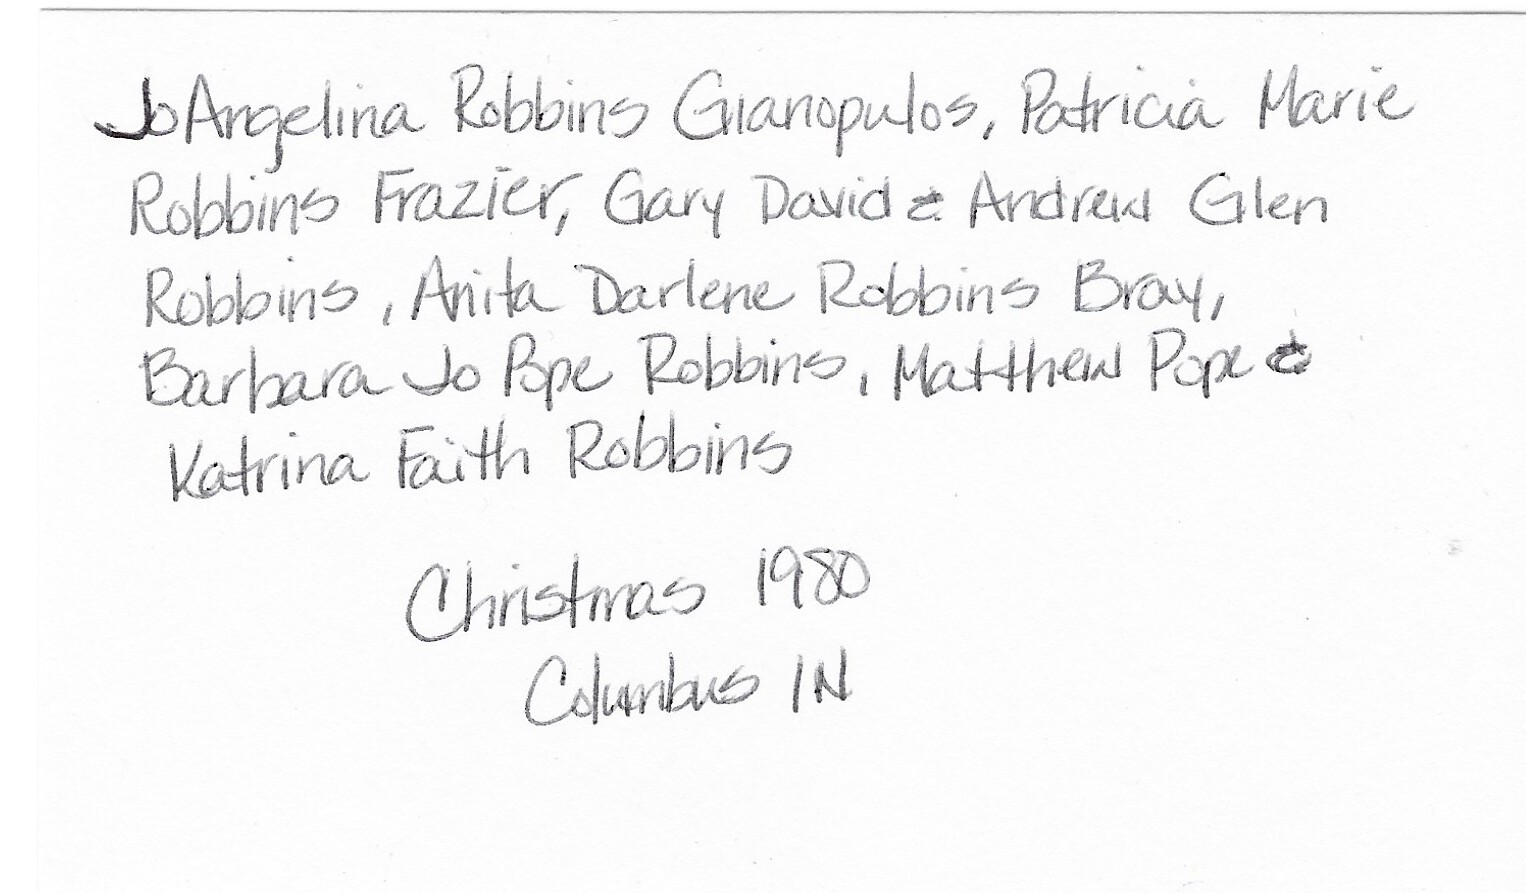 JoAngelina Robbins Gianopulos, Patricia Marie
Robbins Frazier, Gary David & Andrew Glen
Robbins, Anita Darlene Robbins Bray,
Barbara Jo Pope Robbins, Matthew Pope &
Katrina Faith Robbins
Christmas 1980
Columbus IN